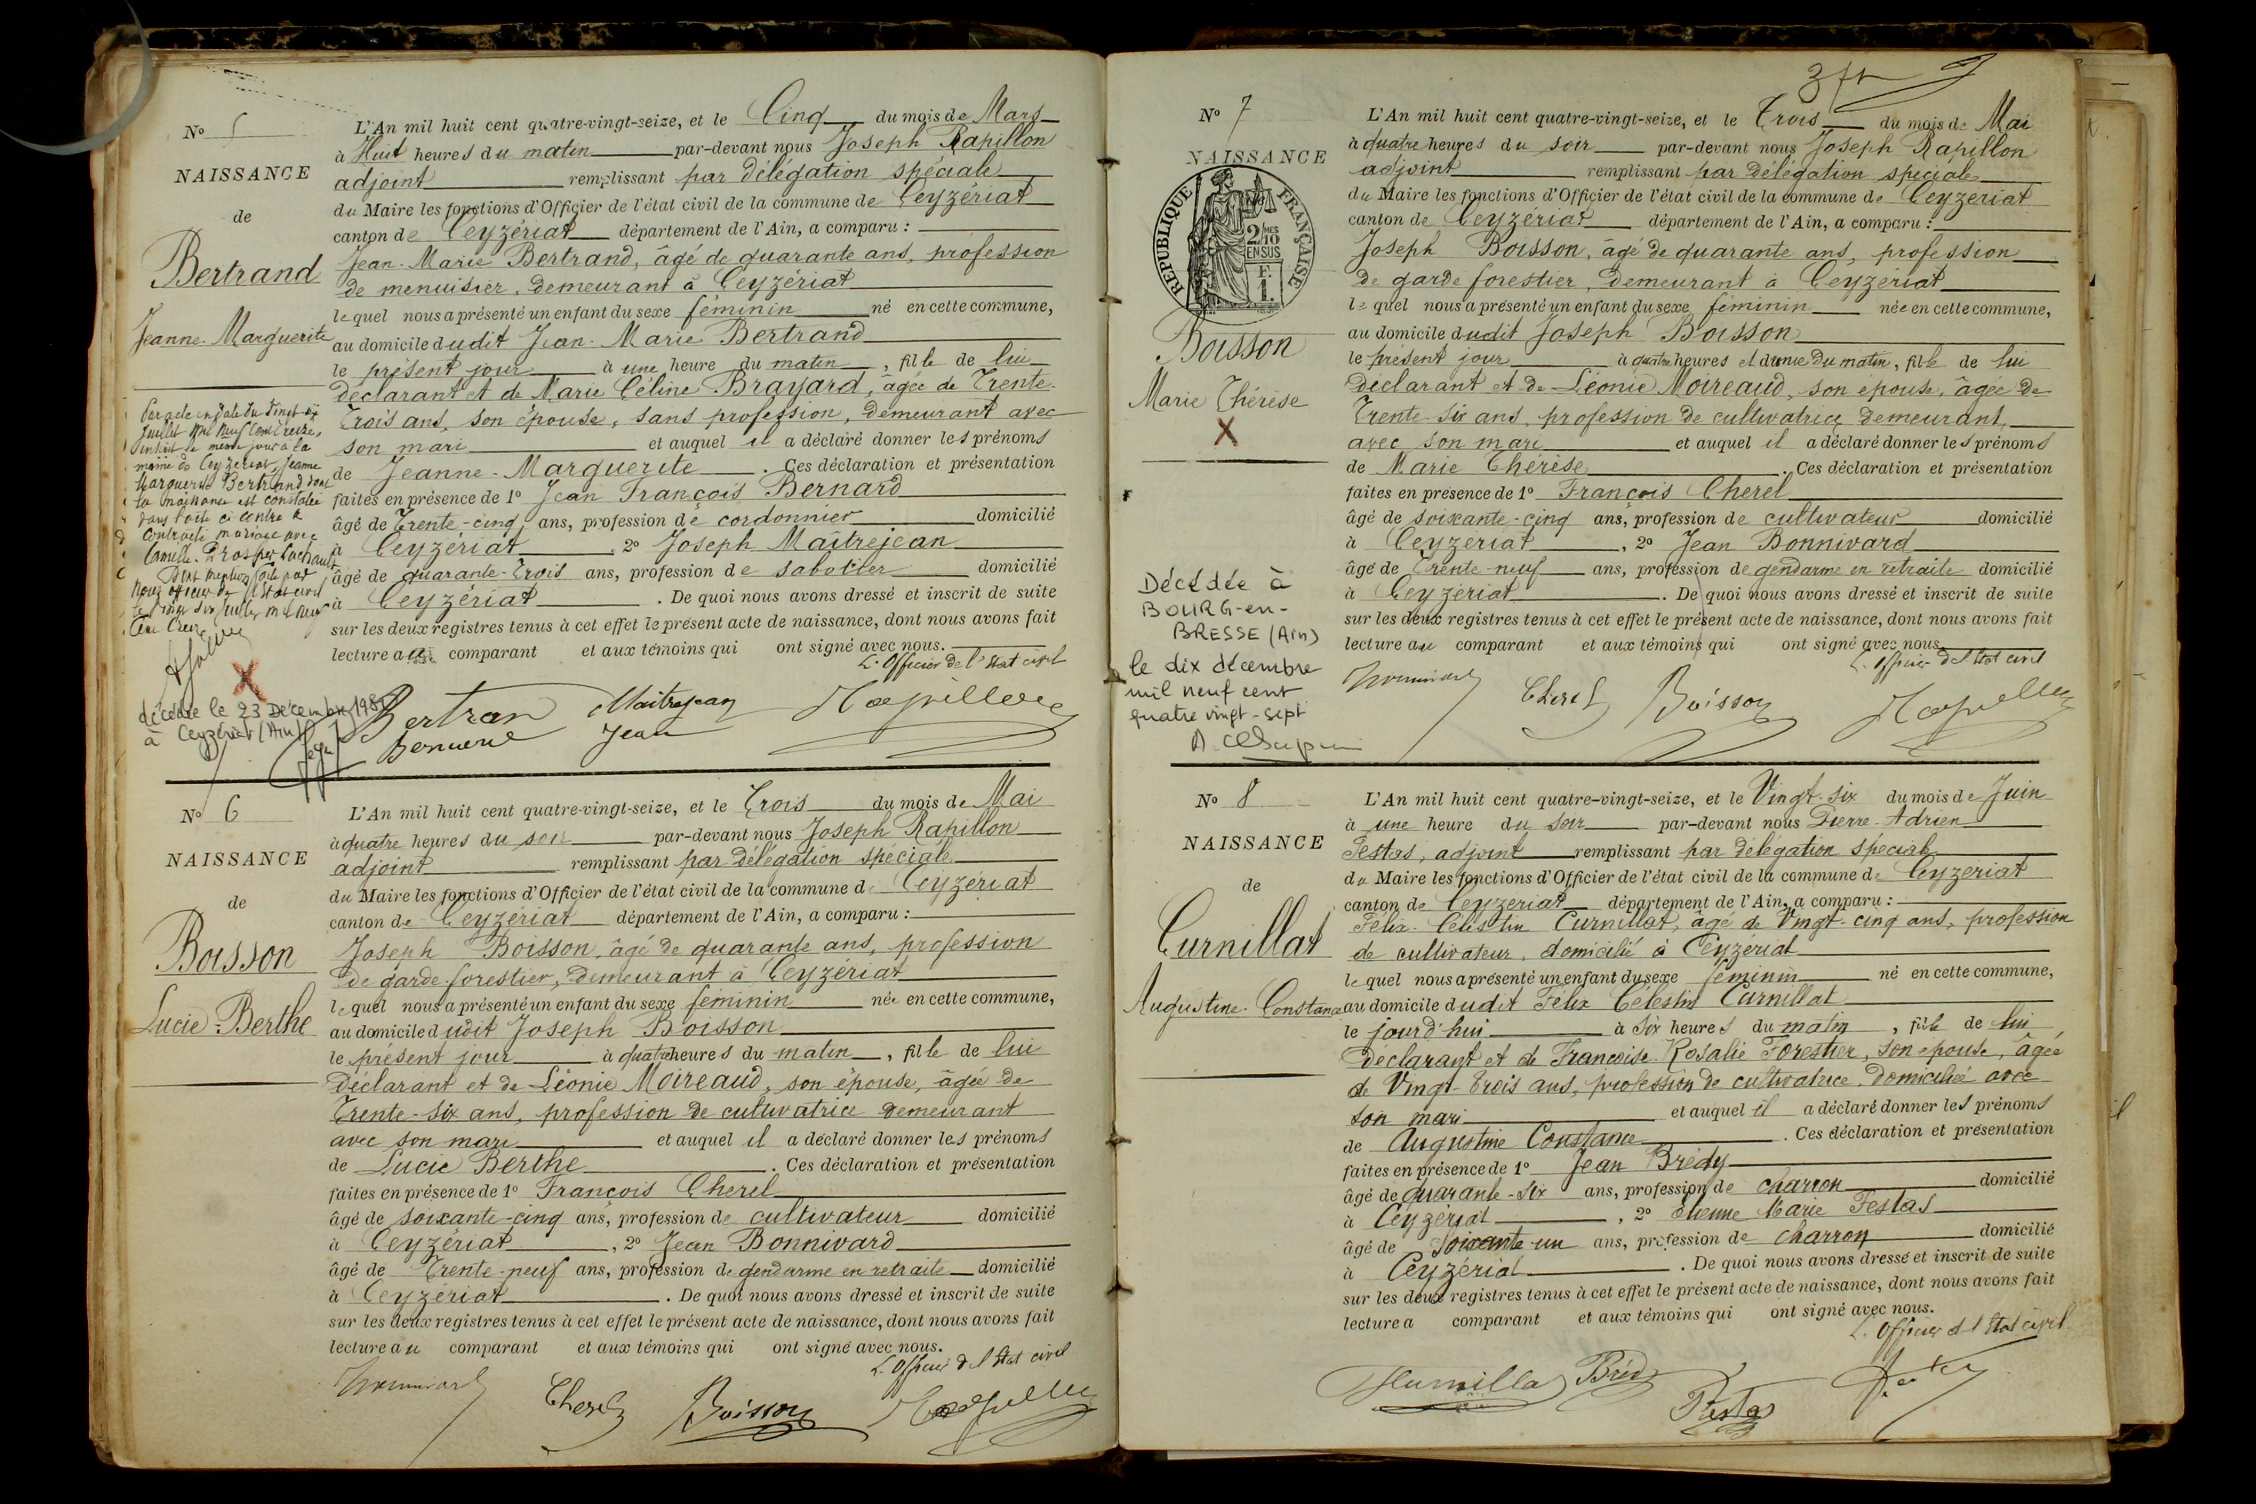 N° 5
NAISSANCE
de
Bertrand
Jeanne-Marguerite
L'An mil huit cent quatre-vingt-seize, et le Cinq du mois de Mars
à Huit heures du matin par-devant nous Joseph Rapillon
adjoint remplissant par délégation spéciale
du Maire les fonctions d'Officier de l'état civil de la commune de Ceyzériat
canton de Ceyzériat département de l'Ain, a comparu :
Jean-Marie Bertrand, âgé de quarante ans, profession
de menuisier, demeurant à Ceyzériat
lequel nous a présenté un enfant du sexe féminin né en cette commune,
au domicile dudit Jean-Marie Bertrand
le présent jour à une heure du matin, fille de lui
déclarant et de Marie Céline Brayard, âgée de Trente-
Trois ans, son épouse, sans profession, demeurant avec
son mari et auquel il a déclaré donner les prénoms
de Jeanne-Marguerite. Ces déclaration et présentation
faites en présence de 1° Jean François Bernard
âgé de Trente-cinq ans, profession de cordonnier domicilié
à Ceyzériat, 2° Joseph Maîtrejean
âgé de quarante-Trois ans, profession de sabotier domicilié
à Ceyzériat. De quoi nous avons dressé et inscrit de suite
sur les deux registres tenus à cet effet le présent acte de naissance, dont nous avons fait
lecture au comparant et aux témoins qui ont signé avec nous.
L'Officier de l'Etat civil
Par acte en date du vingt-six
Juillet mil neuf cent treize,
inscrit le même jour à la
mairie de Ceyzériat, Jeanne
Marguerite Bertrand dont
la naissance est constatée
dans l'acte ci contre a
contracté mariage avec
Camille Prosper
Dont mention faite par
Nous officier de l'état civil
le vingt six juillet mil neuf
cent treize
X
décédée le 23 Décembre 198
à Ceyzériat (Ain)
Bertran Maitrejean Rapillon
Bernard Jean
N° 6
NAISSANCE
de
Boisson
Lucie-Berthe
L'An mil huit cent quatre-vingt-seize, et le Trois du mois de Mai
à quatre heures du soir par-devant nous Joseph Rapillon
adjoint remplissant par délégation spéciale
du Maire les fonctions d'Officier de l'état civil de la commune de Ceyzériat
canton de Ceyzériat département de l'Ain, a comparu :
Joseph Boisson, âgé de quarante ans, profession
de garde forestier, demeurant à Ceyzériat
lequel nous a présenté un enfant du sexe féminin née en cette commune,
au domicile dudit Joseph Boisson
le présent jour à quatre heures du matin, fille de lui
déclarant et de Léonie Moireaud, son épouse, âgée de
Trente-six ans, profession de cultivatrice demeurant
avec son mari et auquel il a déclaré donner les prénoms
de Lucie Berthe. Ces déclaration et présentation
faites en présence de 1° François Cherel
âgé de soixante-cinq ans, profession de cultivateur domicilié
à Ceyzériat, 2° Jean Bonnivard
âgé de Trente-neuf ans, profession de gendarme en retraite domicilié
à Ceyzériat. De quoi nous avons dressé et inscrit de suite
sur les deux registres tenus à cet effet le présent acte de naissance, dont nous avons fait
lecture au comparant et aux témoins qui ont signé avec nous.
L'Officier de l'Etat civil
Bonnivard Cherel Boisson Rapillon
N° 7
NAISSANCE
RÉPUBLIQUE FRANÇAISE
2/10 MES
EN SUS
F.
1.
Boisson
Marie Thérèse
X
L'An mil huit cent quatre-vingt-seize, et le Trois du mois de Mai
à quatre heures du soir par-devant nous Joseph Rapillon
adjoint remplissant par délégation spéciale
du Maire les fonctions d'Officier de l'état civil de la commune de Ceyzériat
canton de Ceyzériat département de l'Ain, a comparu :
Joseph Boisson, âgé de quarante ans, profession
de garde forestier, demeurant à Ceyzériat
lequel nous a présenté un enfant du sexe féminin née en cette commune,
au domicile dudit Joseph Boisson
le présent jour à quatre heures et demie du matin, fille de lui
déclarant et de Léonie Moireaud, son épouse, âgée de
Trente-six ans, profession de cultivatrice demeurant
avec son mari et auquel il a déclaré donner les prénoms
de Marie Thérèse. Ces déclaration et présentation
faites en présence de 1° François Cherel
âgé de soixante-cinq ans, profession de cultivateur domicilié
à Ceyzériat, 2° Jean Bonnivard
âgé de Trente-neuf ans, profession de gendarme en retraite domicilié
à Ceyzériat. De quoi nous avons dressé et inscrit de suite
sur les deux registres tenus à cet effet le présent acte de naissance, dont nous avons fait
lecture au comparant et aux témoins qui ont signé avec nous.
L'Officier de l'Etat civil
Décédée à
BOURG-en-
BRESSE (Ain)
le dix décembre
mil neuf cent
quatre vingt-sept
Bonnivard Cherel Boisson Rapillon
N° 8
NAISSANCE
de
Curnillat
Augustine-Constance
L'An mil huit cent quatre-vingt-seize, et le Vingt-six du mois de Juin
à une heure du soir par-devant nous Pierre-Adrien
Festas, adjoint remplissant par délégation spéciale
du Maire les fonctions d'Officier de l'état civil de la commune de Ceyzériat
canton de Ceyzériat département de l'Ain, a comparu :
Félix-Célestin Curnillat, âgé de Vingt-cinq ans, profession
de cultivateur, domicilié à Ceyzériat
lequel nous a présenté un enfant du sexe féminin né en cette commune,
au domicile dudit Félix Célestin Curnillat
le jourd'hui à six heures du matin, fille de lui
déclarant et de Françoise-Rosalie Forestier, son épouse, âgée
de Vingt-Trois ans, profession de cultivatrice domiciliée avec
son mari et auquel il a déclaré donner les prénoms
de Augustine Constance. Ces déclaration et présentation
faites en présence de 1° Jean Brédy
âgé de quarante-six ans, profession de charron domicilié
à Ceyzériat, 2° Etienne Marie Festas
âgé de soixante-un ans, profession de charron domicilié
à Ceyzériat. De quoi nous avons dressé et inscrit de suite
sur les deux registres tenus à cet effet le présent acte de naissance, dont nous avons fait
lecture a comparant et aux témoins qui ont signé avec nous.
L'Officier de l'Etat civil
Curnillat Brédy Festas